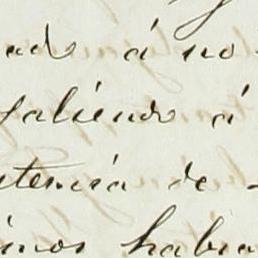 ad á no
saliendo á
tenia de
inos habia